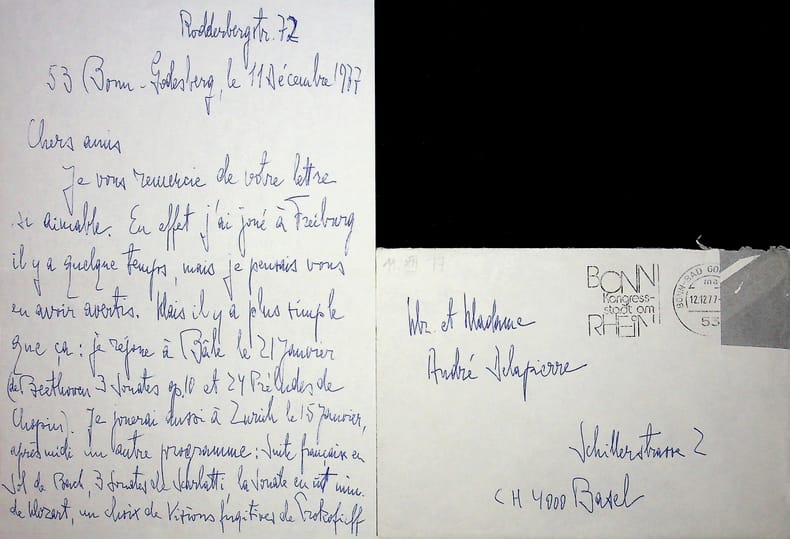 Rodderbergstr. 72
53 Bonn-Godesberg, le 11 Décembre 1977
Chers amis
Je vous remercie de votre lettre
si aimable. En effet j'ai joué à Freiburg
il y a quelque temps, mais je pensais vous
en avoir avertis. Mais il y a plus simple
que ça : je rejoue à Bâle le 21 Janvier
(de Beethoven 3 Sonates op. 10 et 24 Préludes de
Chopin). Je jouerai aussi à Zurich le 15 Janvier,
après midi un autre programme : Suite française en
Sol de Bach, 3 Sonates de Scarlatti la Sonate en ut min.
de Mozart, un choix de Visions fugitives de Prokofieff
11. XII 77
BONN
Kongress-
stadt am
RHEIN
BONN-BAD GO
12.12.77
53
Mr. et Madame
André Delapierre
Schillerstrasse 2
CH 4000 Basel